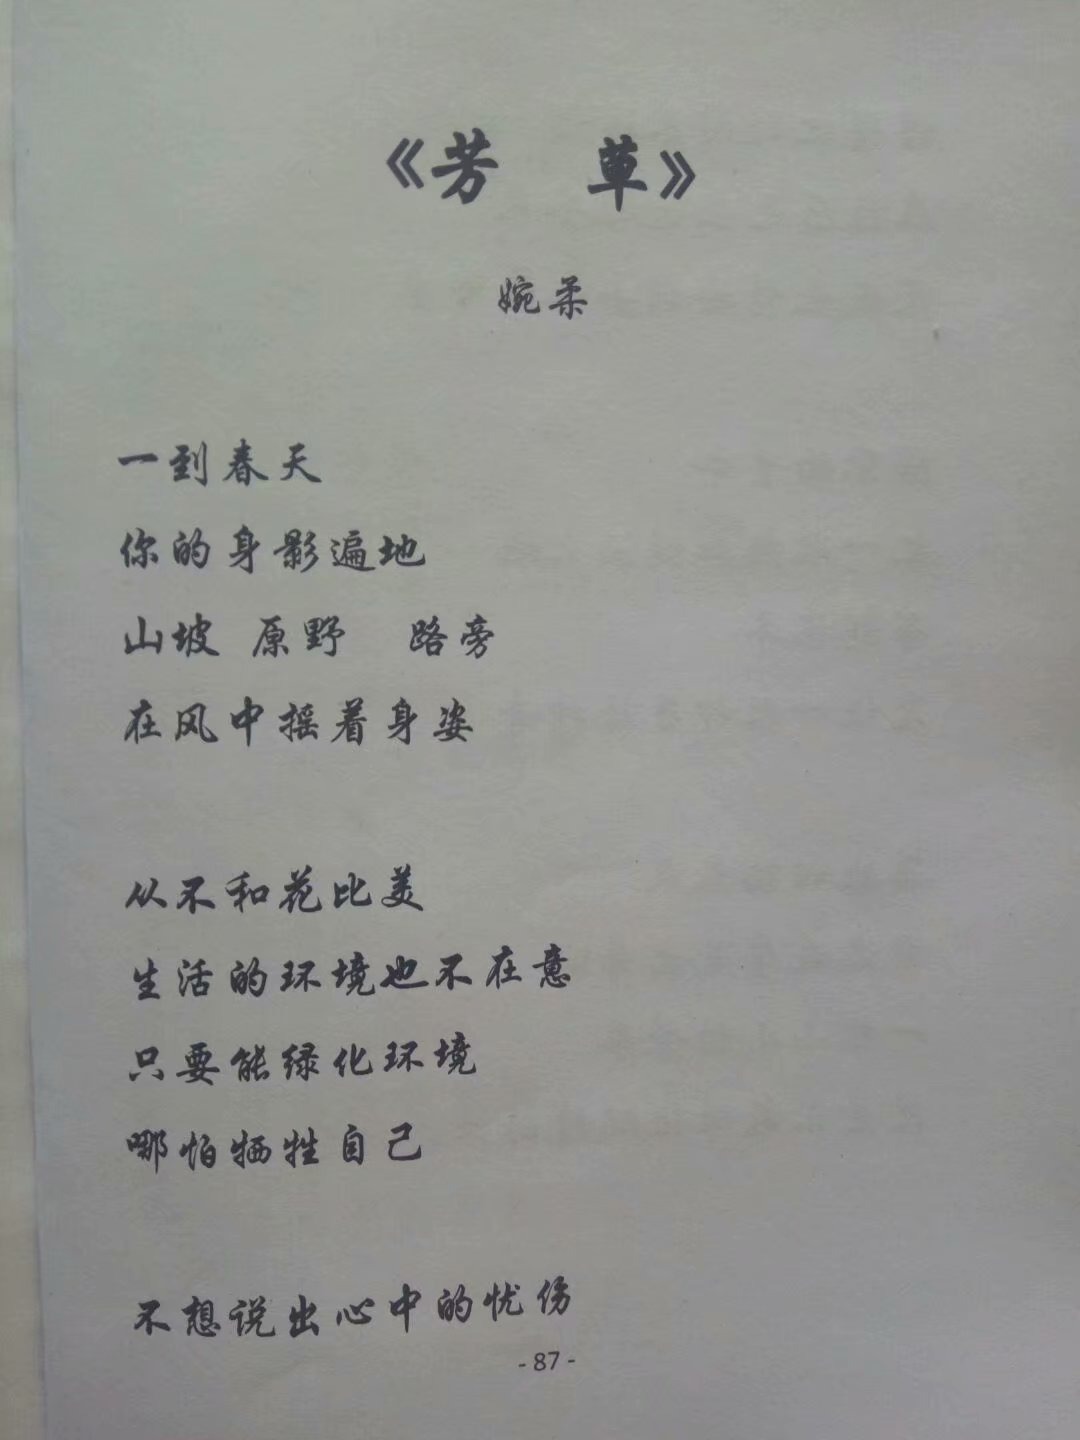 《芳 草》
婉柔
一到春天
你的身影遍地
山坡 原野 路旁
在风中摇着身姿
从不和花比美
生活的环境也不在意
只要能绿化环境
哪怕牺牲自己
不想说出心中的忧伤
- 87 -